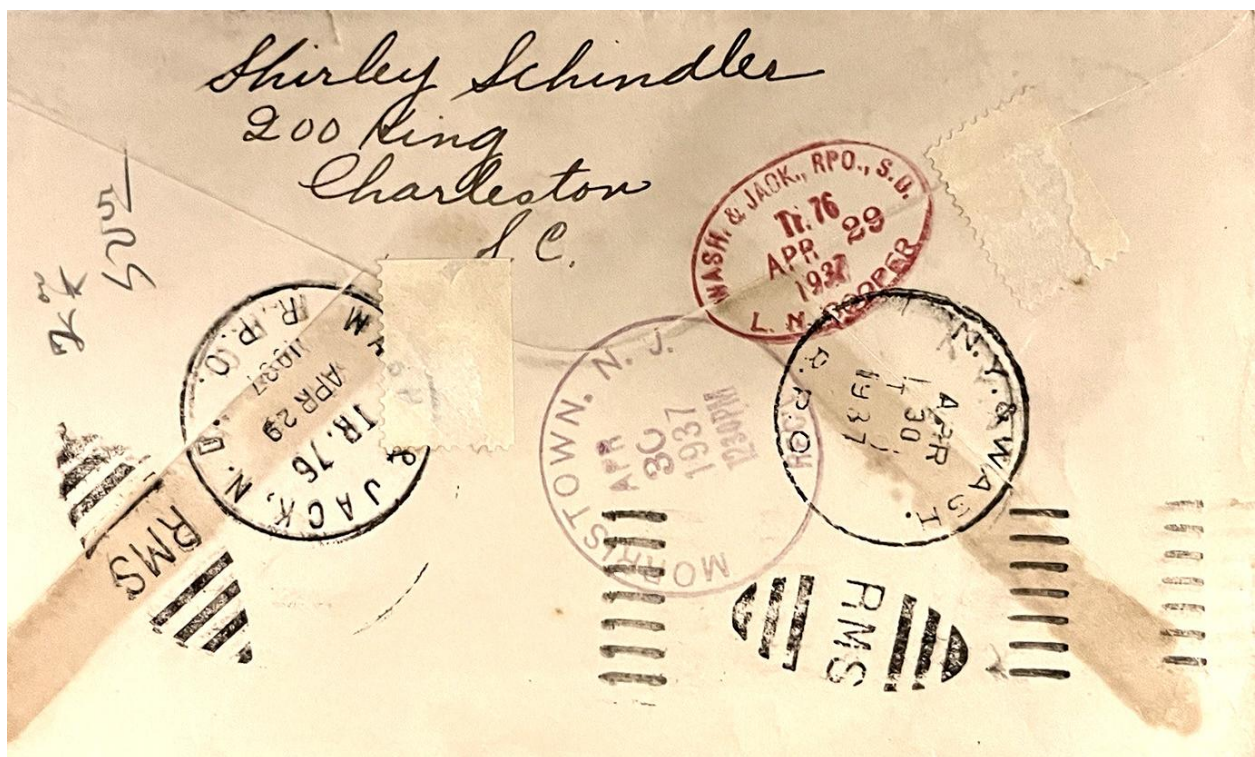 Shirley Schindler
200 King
Charleston
S C.
WASH. & JACK., RPO., S.D.
Tr. 76
APR 29
1937
L. N. COOPER
& JACK. N. D.
R.P.O.
TR. 76
APR 29
1937
RMS
MORRISTOWN, N. J.
APR
30
1937
1230PM
N.Y. & WASH.
R.P.O.
APR
30
1937
RMS